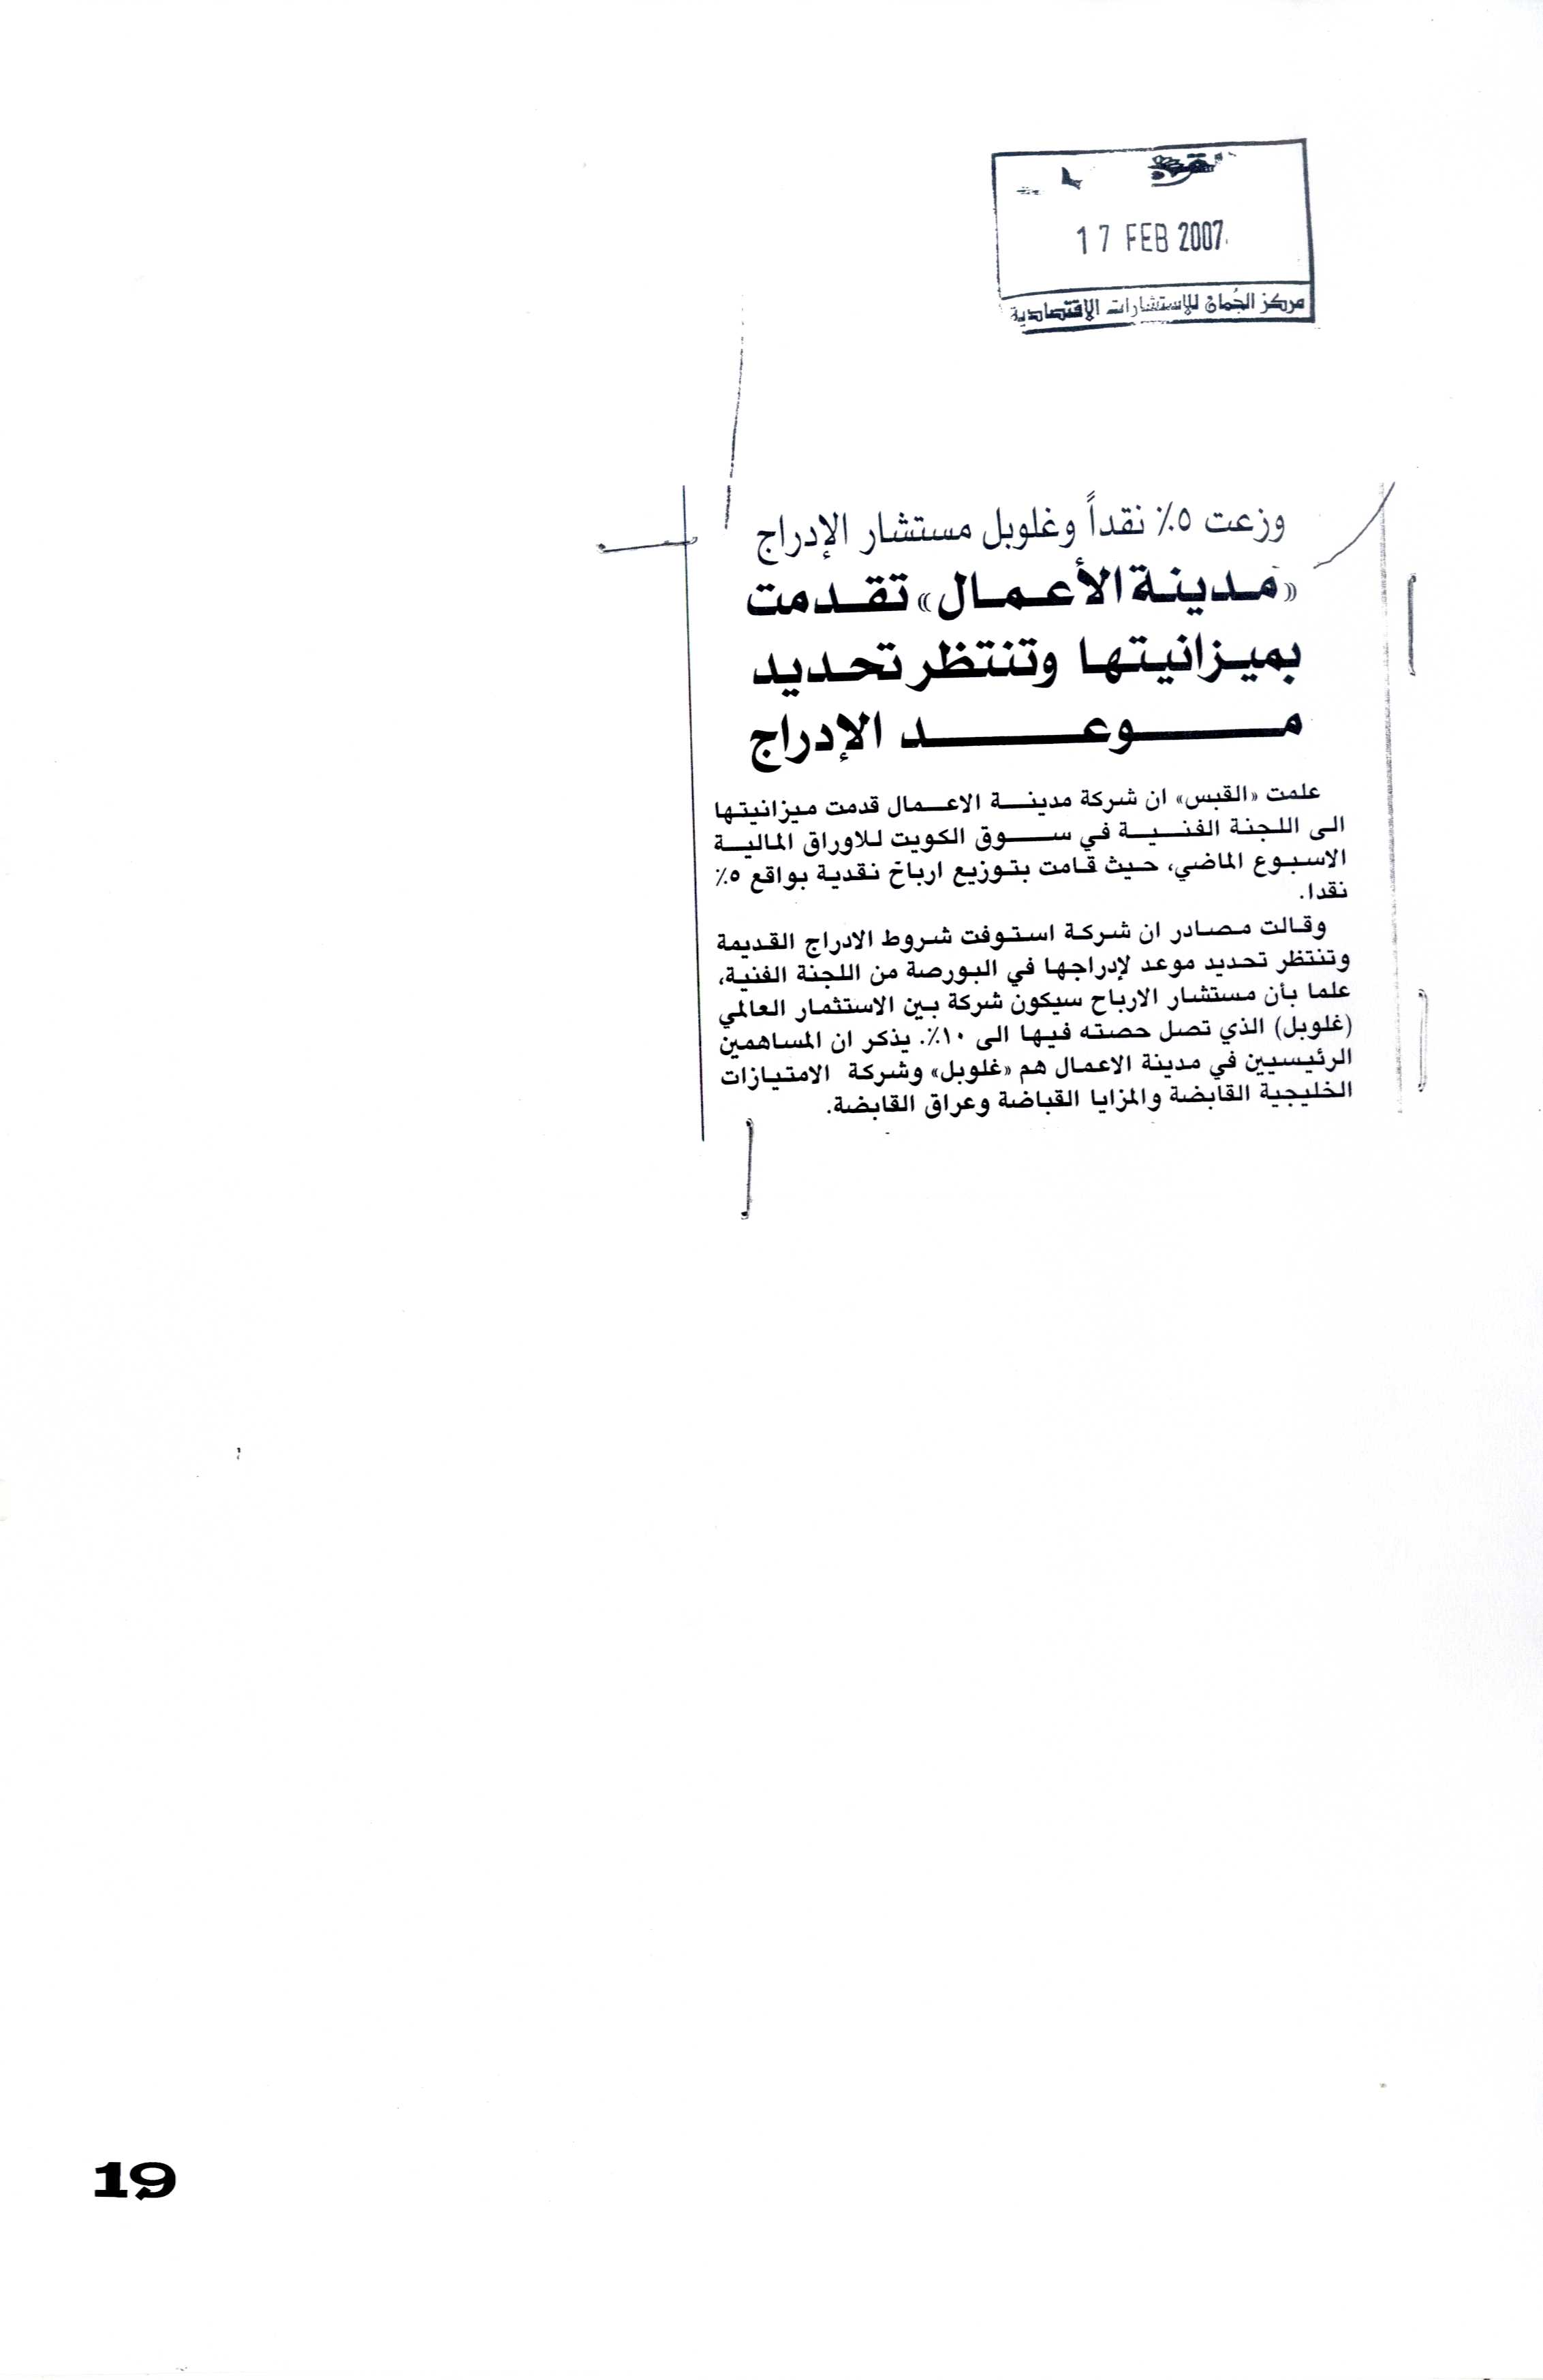 17 FEB 2007
مركز الجُمان للإستشارات الإقتصادية
وزعت ٥٪ نقداً وغلوبل مستشار الإدراج
«مدينة الأعمال» تقدمت
بميزانيتها وتنتظر تحديد
موعد الإدراج
علمت «القبس» ان شركة مدينة الاعمال قدمت ميزانيتها
الى اللجنة الفنية في سوق الكويت للاوراق المالية
الاسبوع الماضي، حيث قامت بتوزيع ارباح نقدية بواقع ٥٪
نقدا.
وقالت مصادر ان شركة استوفت شروط الادراج القديمة
وتنتظر تحديد موعد لإدراجها في البورصة من اللجنة الفنية،
علما بأن مستشار الارباح سيكون شركة بين الاستثمار العالمي
(غلوبل) الذي تصل حصته فيها الى ١٠٪. يذكر ان المساهمين
الرئيسيين في مدينة الاعمال هم «غلوبل» وشركة الامتيازات
الخليجية القابضة والمزايا القباضة وعراق القابضة.
19